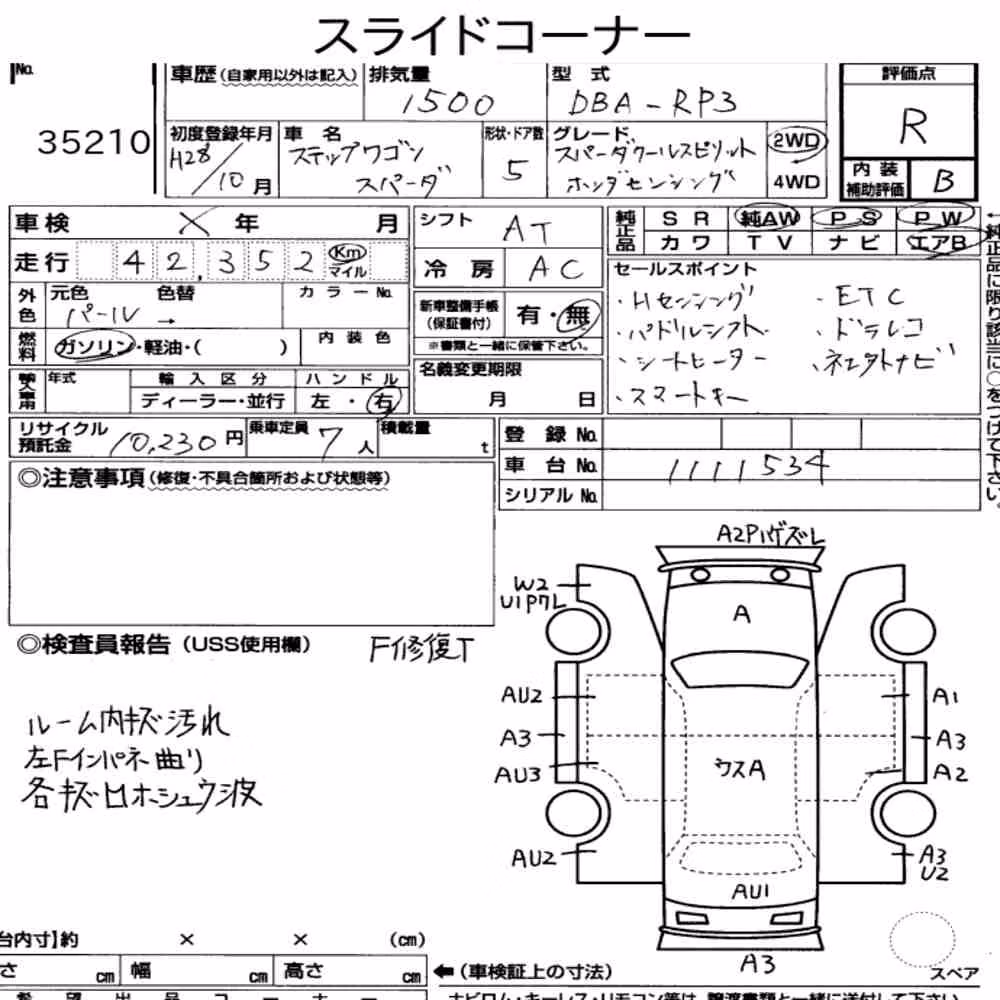 スライドコーナー
No. 35210
車歴(自家用以外は記入) 排気量 1500
型式 DBA-RP3
評価点 R
初度登録年月 H28/10月
車名 ステップワゴン スパーダ
形状・ドア数 5
グレード スパーダクールスピリット ホンダセンシング
2WD 4WD
内装補助評価 B
車検 × 年 月
シフト AT
純正品 SR 純AW PS PW
カワ TV ナビ エアB
走行 42,352 Km マイル
冷房 AC
セールスポイント
・Hセンシング ・ETC
・パドルシフト ・ドラレコ
・シートヒーター ・ネエタトナビ
・スマートキー
外色 元色 パール → 色替 カラーNo.
新車整備手帳(保証書付) 有・無
※書類と一緒に保管下さい。
燃料 ガソリン・軽油・( ) 内装色
輸入車用 年式 輸入区分 ハンドル
ディーラー・並行 左・右
名義変更期限 月 日
リサイクル預託金 10,230円 乗車定員 7人 積載量 t
登録No.
車台No. 1111534
シリアルNo.
←純正品に限り該当に○をつけて下さい。
◎注意事項(修復・不具合箇所および状態等)
◎検査員報告(USS使用欄) F修復T
ルーム内キズ汚れ
左Fインパネ曲り
各キズロホシュウ波
A2Pハゲズレ
W2
U1PワL
A
AU2 A1
A3 A3
AU3 ウスA A2
AU2 A3
U2
AU1
A3
スペア
台内寸】約 × × (cm)
さ cm 幅 cm 高さ cm
←(車検証上の寸法)
希望出品コーナー
ナビロム・キーレス・リモコン等は、譲渡書類と一緒に送付して下さい